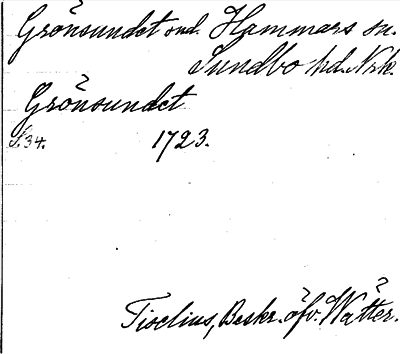 Grönsundet ond. Hammars sn.
Sundbo hd. Nrk.
Grönsundet
S. 34. 1723.
Tiselius, Beskr. öfv. Wätter.